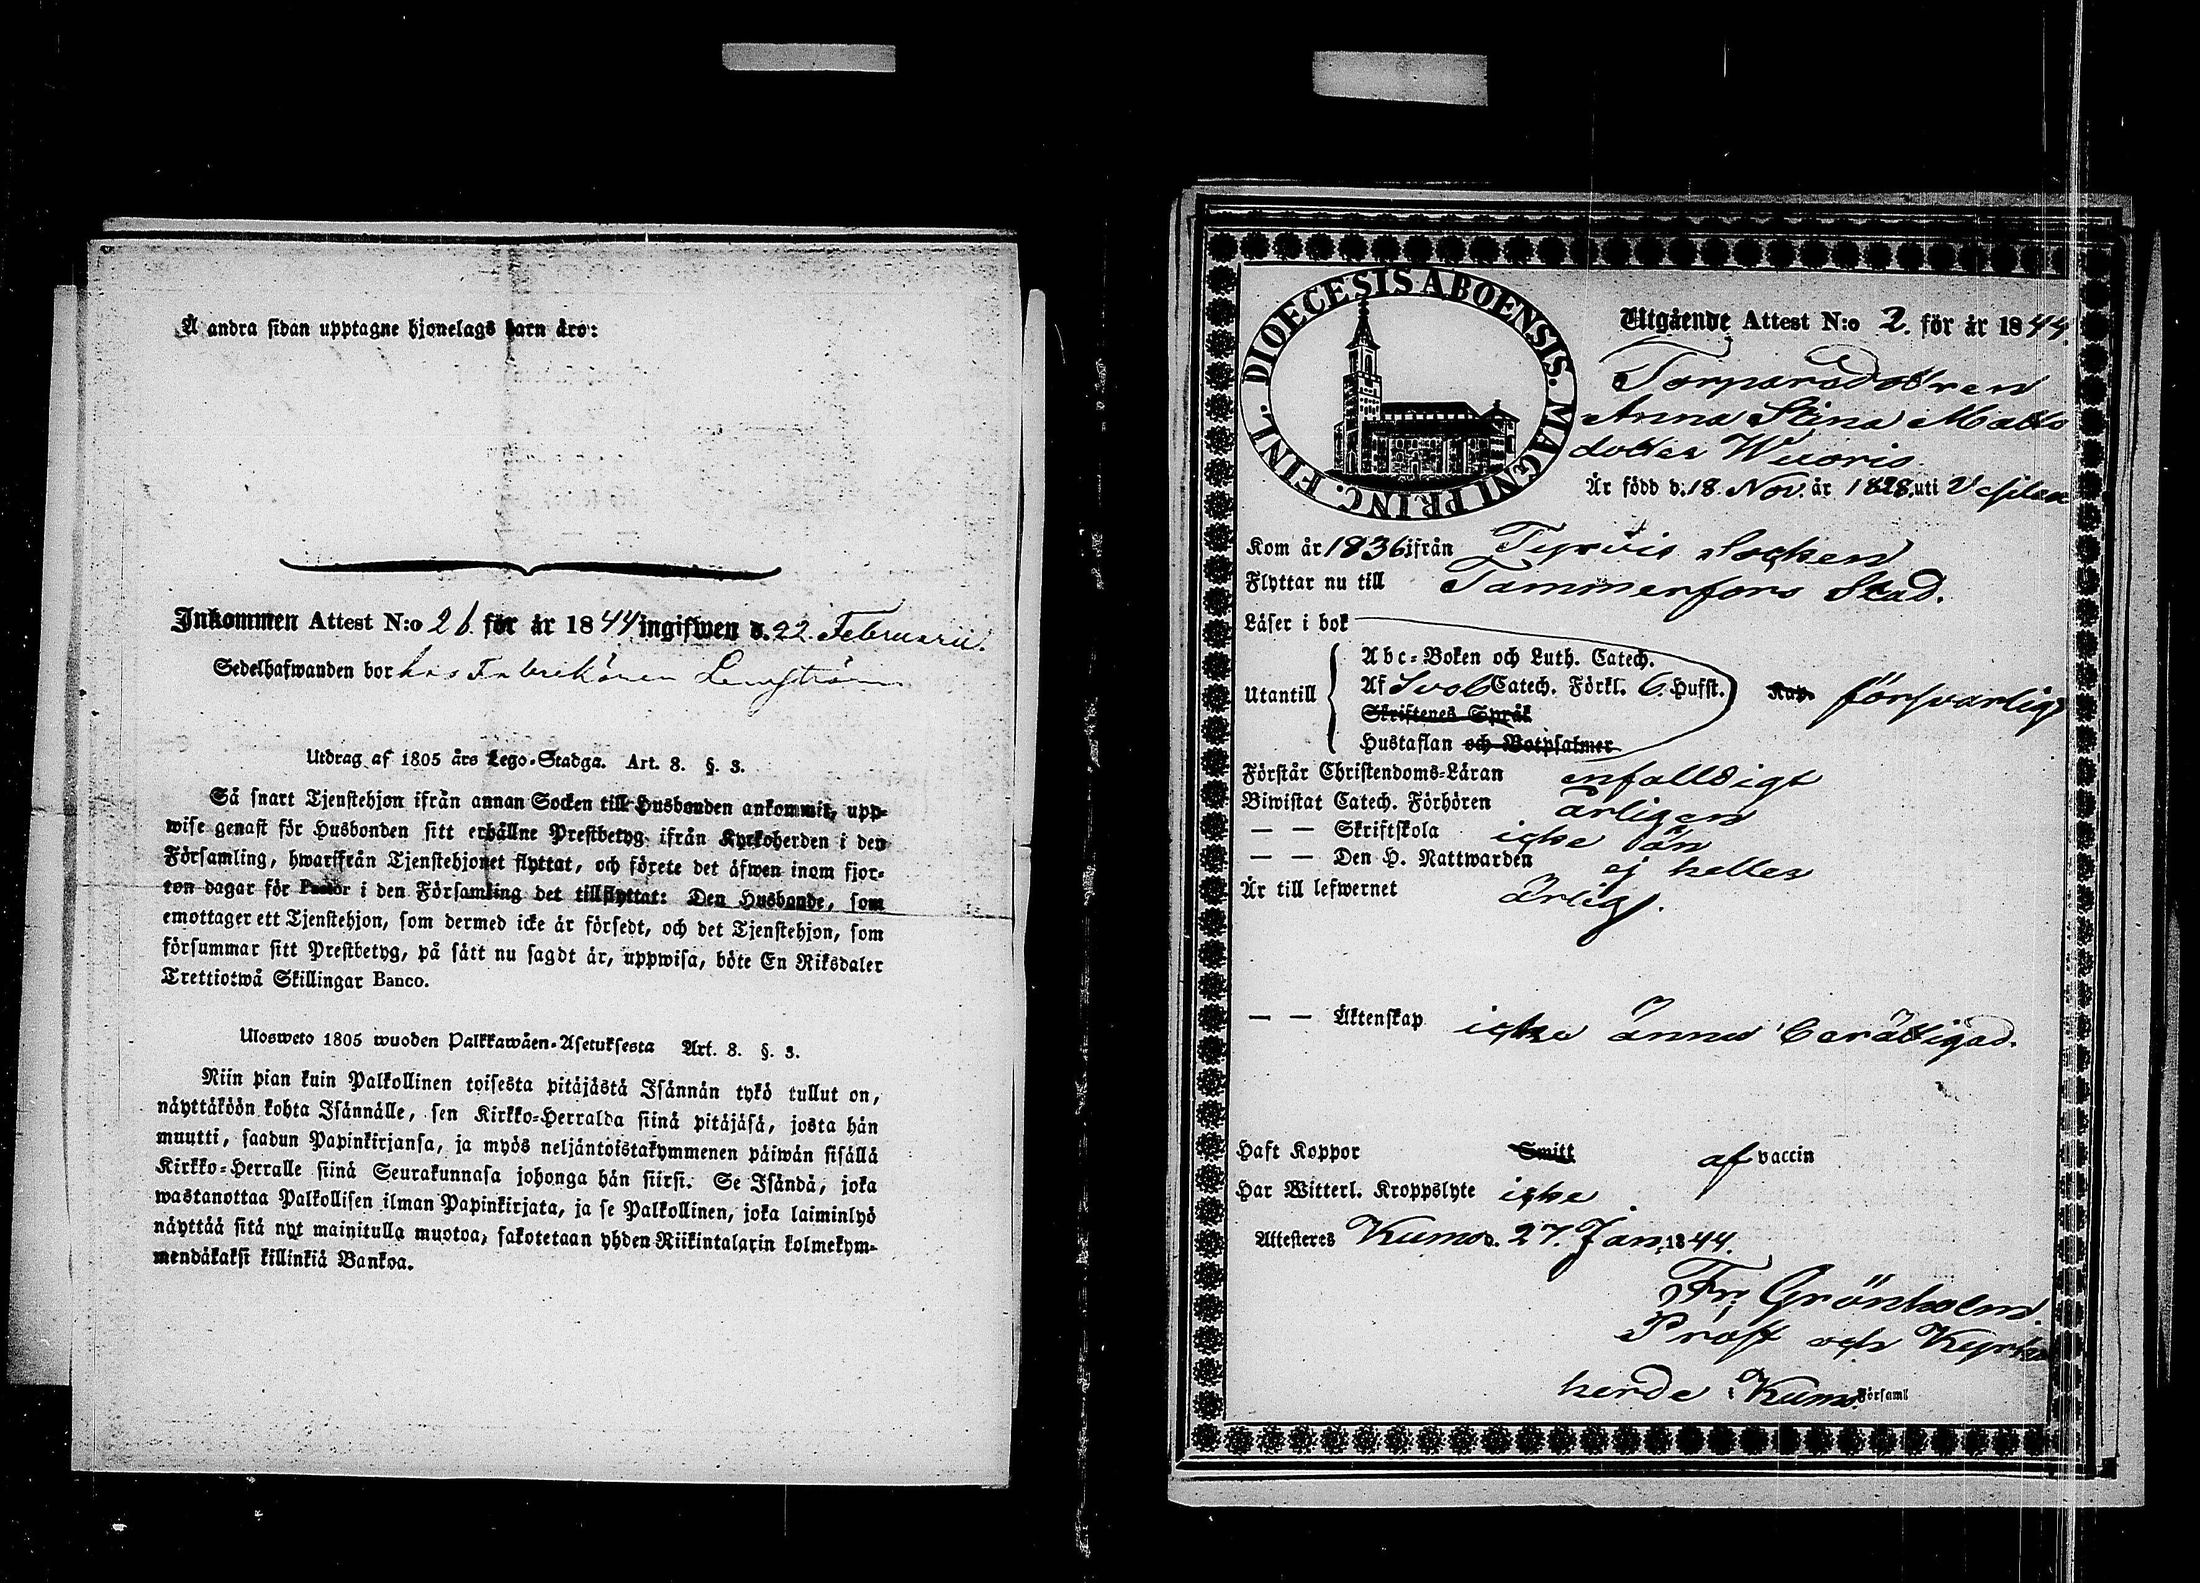 Å andra sidan upptagne hjonelags barn äro:
Inkommen Attest N:o 26 för år 1844 ingifwen d. 22 Februarii.
Sedelhafwanden bor hos Fabrikören
Utdrag af 1805 års Lego-Stadga. Art. 8. §. 3.
Så snart Tjenstehjon ifrån annan Socken till Husbonden ankommit, upp-
wise genast för Husbonden sitt erhållne Prestbetyg ifrån Kyrkoherden i den
Församling, hwarifrån Tjenstehjonet flyttat, och förete det äfwen inom fjor-
ton dagar för Pastor i den Församling det tillflyttat: Den Husbonde, som
emottager ett Tjenstehjon, som dermed icke är försedt, och det Tjenstehjon, som
försummar sitt Prestbetyg, på sätt nu sagdt är, uppwisa, böte En Riksdaler
Trettiotwå Skillingar Banco.
Ulosweto 1805 wuoden Palkkawäen-Asetuksesta Art. 8. §. 3.
Niin pian kuin Palkollinen toisesta pitäjästä Isännän tykö tullut on,
näyttäköön kohta Isännälle, sen Kirkko-Herralda siinä pitäjäsä, josta hän
muutti, saadun Papinkirjansa, ja myös neljäntoistakymmenen päiwän sisällä
Kirkko-Herralle siinä Seurakunnasa johonga hän siirsi. Se Isändä, joka
wastanottaa Palkollisen ilman Papinkirjata, ja se Palkollinen, joka laiminlyö
näyttää sitä nyt mainitulla muotoa, sakotetaan yhden Riikintalarin kolmekym-
mendäkaksi killinkiä Bankoa.
DIOECESIS ABOENSIS. MAGNI PRINC. FINL.
Utgående Attest N:o 2. för år 1844.
Torparedottren
Anna Stina Matts
dotter Wuoris
Är född d. 18. Nov. år 1828 uti Vesilax
Kom år 1836 ifrån Tyrvis Socken
Flyttar nu till Tammerfors Stad.
Läser i bok
Abc-Boken och Luth. Catech.
Utantill Af Sveb Catech. Förkl. 6. Hufst. Nap. försvarligt
Skriftenes Språk
Hustaflan och Botpsalmer
Förstår Christendoms-Läran enfalldigt
Biwistat Catech. Förhören årligen
— — Skriftskola icke än
— — Den H. Nattwarden ej heller
Är till lefwernet ärlig.
— — Äktenskap icke ännu berättigad.
Haft Koppor Smitt af vaccin
Har Witterl. Kroppslyte icke
Attesteres Kumo d. 27. Jan. 1844.
Fr. Grönholm.
Prost och Kyrko
herde i Kumo Församl